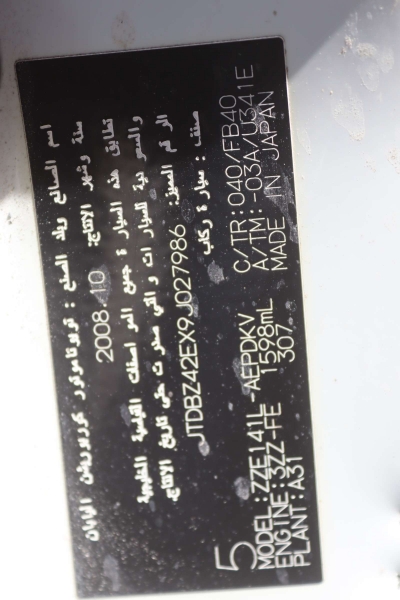 اسم الصانع وبلد الصنع : تويوتا موتور كوربوريشن اليابان
سنة وشهر الانتاج: 2008.10
تطابق هذه السيارة جميع المواصفات القياسية الخليجية
والسعودية للسيارات والتي صدرت حتى تاريخ الانتاج.
الرقم المميز: JTDBZ42EX9J027986
صنف : سيارة ركاب
5
MODEL:ZZE141L-AEPDKV C/TR:040/FB40
ENGINE:3ZZ-FE 1598mL A/TM:-03A/U341E
PLANT:A31 307 MADE IN JAPAN